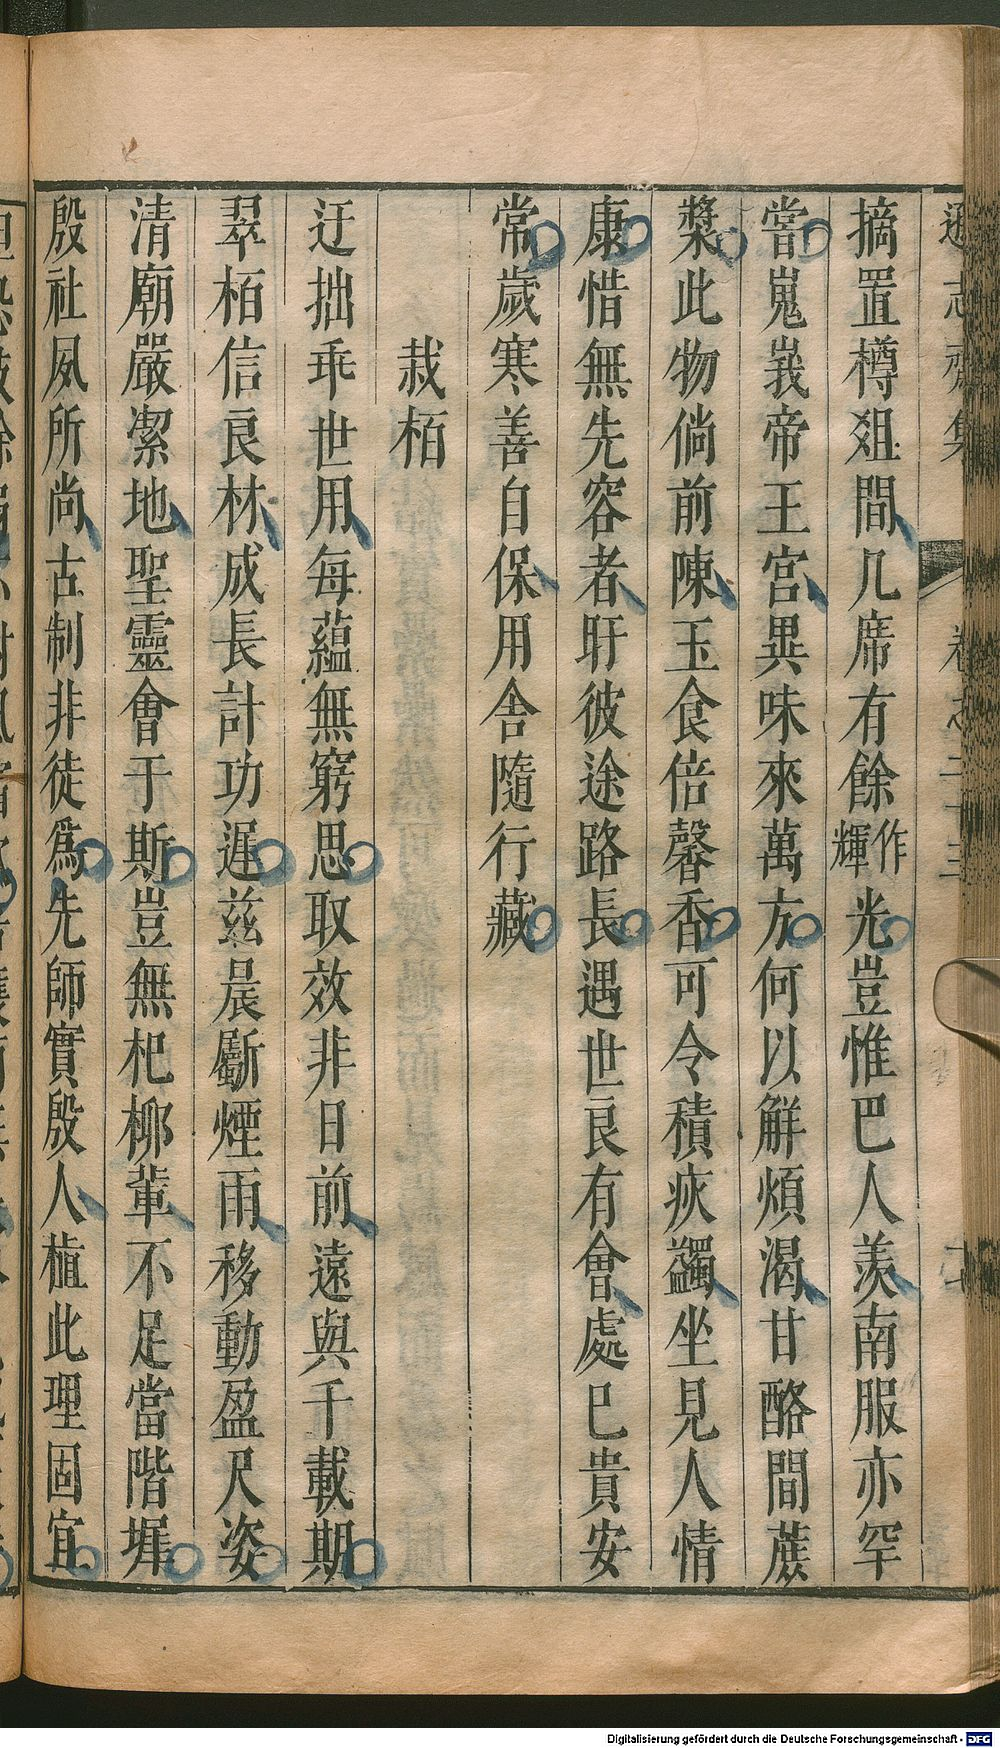 遜志齋集 卷之二十三
摘置樽爼間几席有餘輝作光豈惟巴人羨南服亦罕
嘗嵬峩帝王宮異味來萬方何以解煩渴甘酪間蔗
漿此物倘前陳玉食倍馨香可令積疢蠲坐見人情
康惜無先容者盱彼途路長遇世良有會處巳貴安
常歲寒善自保用舍隨行藏
栽栢
迂拙乖世用每蘊無窮思取效非日前遠與千載期
翠栢信良材成長計功遲茲晨斸煙雨移動盈尺姿
清廟嚴潔地聖靈會于斯豈無杞柳輩不足當階墀
殷社夙所尚古制非徒爲先師實殷人植此理固宜
Digitalisierung gefördert durch die Deutsche Forschungsgemeinschaft - DFG